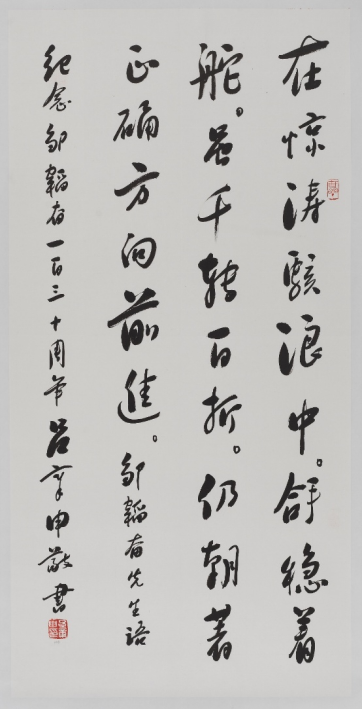 在惊涛骇浪中。能稳着
舵。虽千转百折。仍朝著
正确方向前進。邹韬奋先生语
纪念邹韬奋一百三十周年 吕章申敬书